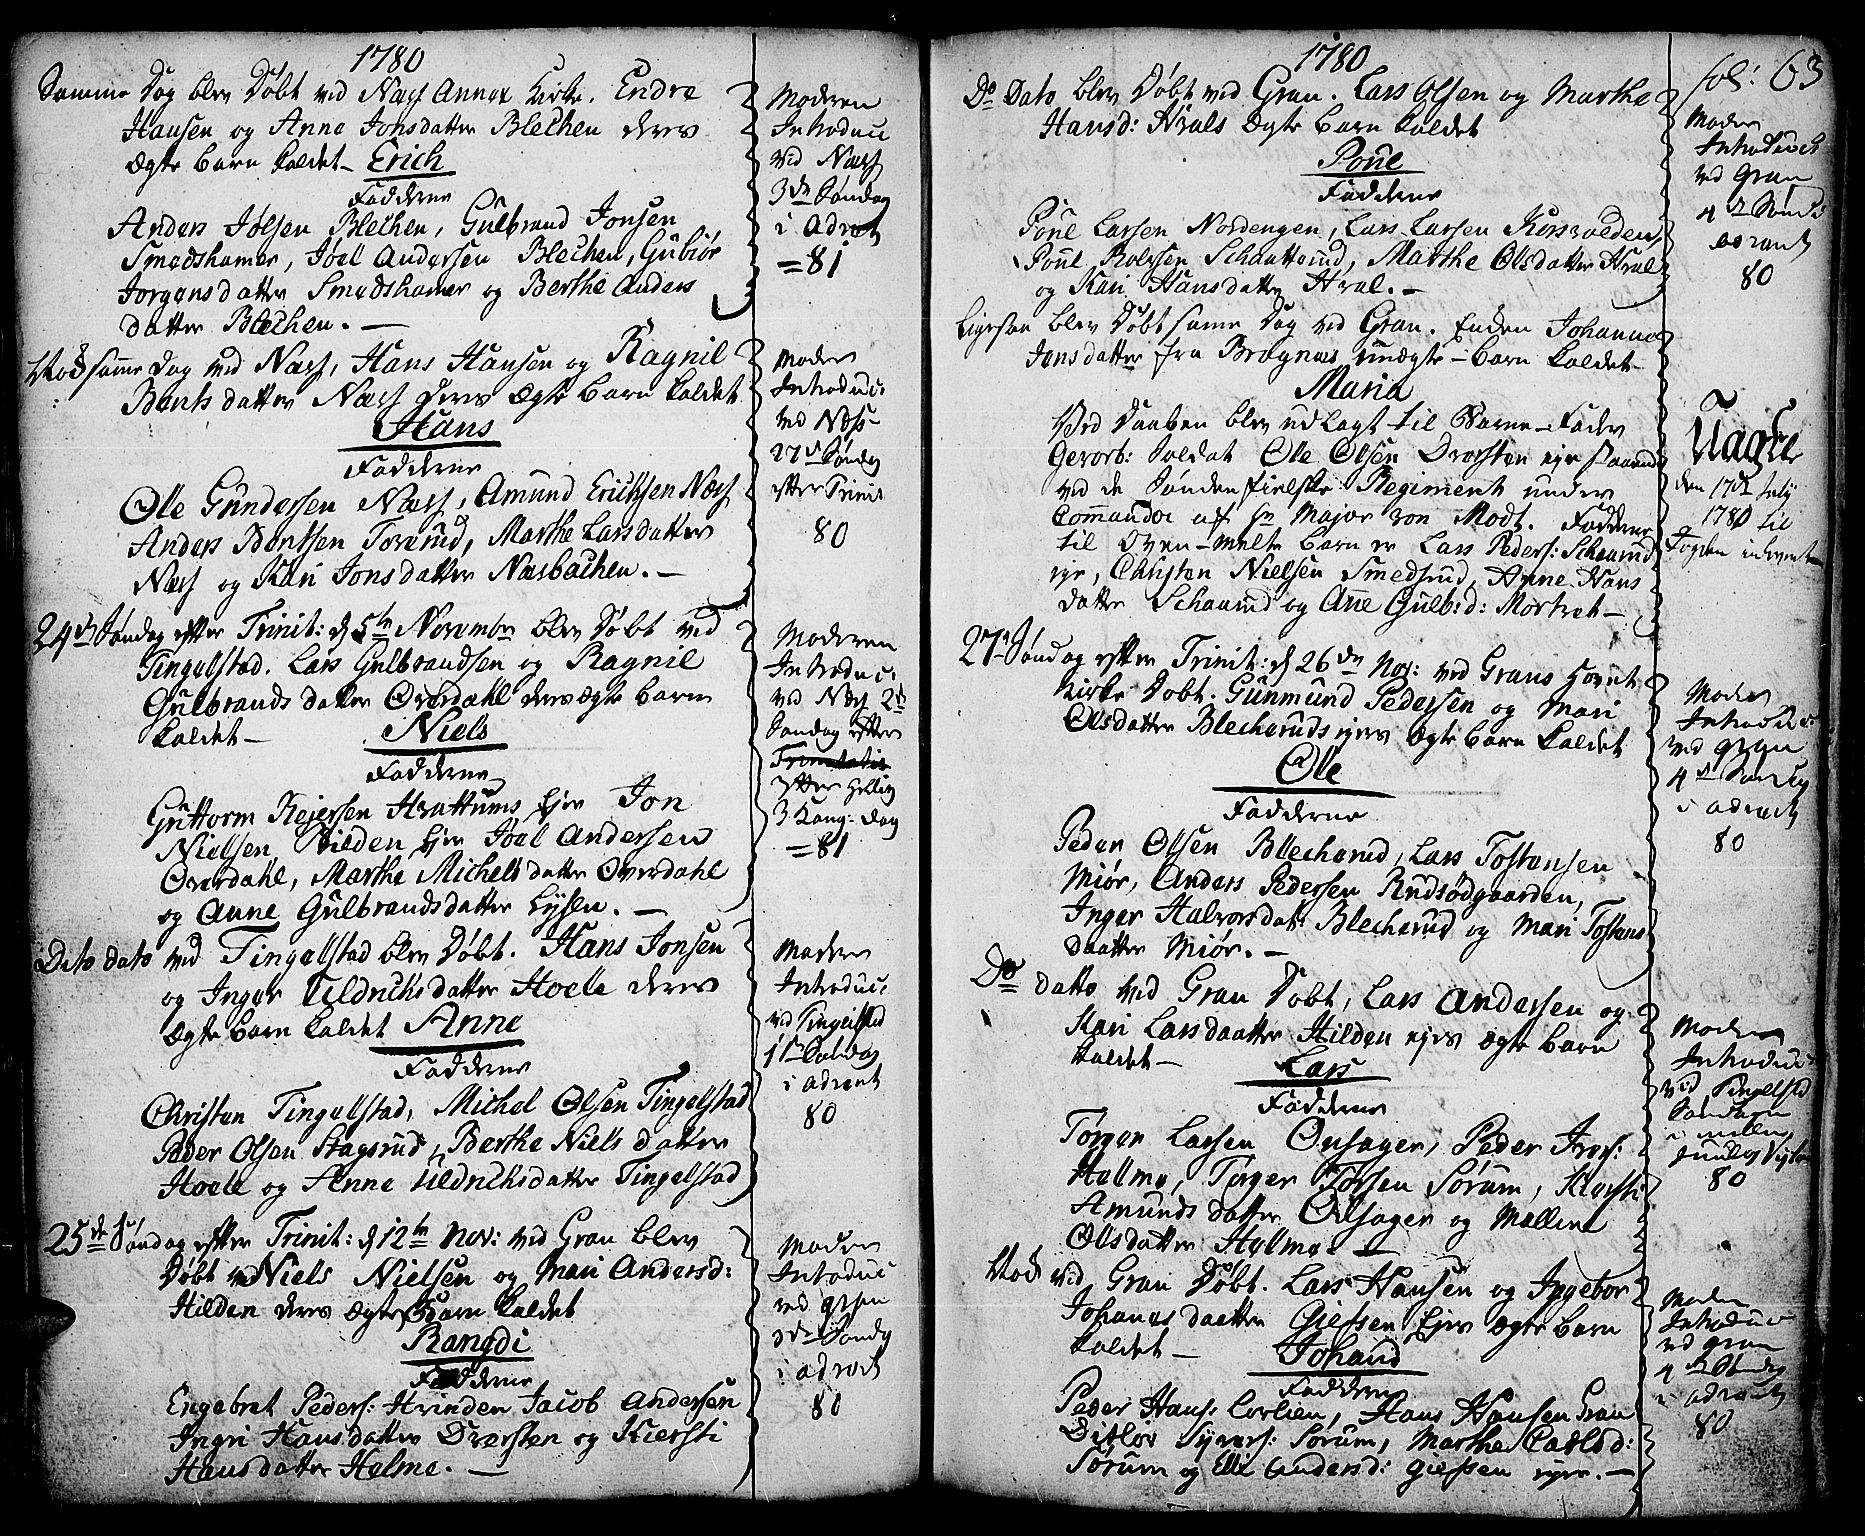 1780
Samme Dag blev Døbt ved Næss Annex Kirke. Endre
Hansen og Anne Jonsdatter Blechen deres
Ægte barn kaldet — Erich
Fadderne
Anders Jølsen Blechen, Gulbrand Jonsen
Smedshamer, Joel Andersen Blechen, Gubiør
Jorgensdatter Smedshamer og Berthe Anders
datter Blechen. —
Moderen
Introduc:
ved Næss
3de Søndag
i Advent
= 81
samme Dag ved Næss, Hans Hansen og Ragnil
Bentsdatter Næss deres Ægte barn kaldet
Hans
Fadderne
Ole Gundersen Næss, Amund Erichsen Næss
Anders Bentsen Torerud, Marthe Larsdatter
Næss og Kari Jonsdatter Næsbachen. —
Moderen
Introduc:
ved Næss
27de Søndag
efter Trinit
80
24de Søndag efter Trinit: d 5te November blev Døbt ved
Tingelstad. Lars Gulbrandsen og Ragnil
Gulbrandsdatter Overdahl deres ægte barn
kaldet — Niels
Fadderne
Guttorm Rejersen Hvattums ejer Jon
Nielsen Hilden ejer Joel Andersen
Overdahl, Marthe Michelsdatter Overdahl
og Anne Gulbrandsdatter Lysen. —
Moderen
Introduc:
ved Næss 2de
Søndag efter
Trinitatis
efter Hellig
3 Kong: dag
= 81
Dito dato ved Tingelstad blev Døbt. Hans Jonsen
og Inger Uldrichsdatter Hoele deres
Ægte barn kaldet Anne
Fadderne
Christen Tingelstad, Michel Olsen Tingelstad
Peder Olsen Stagsrud, Berthe Nielsdatter
Hoele og Anne Uldrichsdatter Tingelstad
Moderen
Introduc:
ved Tingelstad
1ste Søndag
i advent
80
25de Søndag efter Trinit: d 12te Nov: ved Gran blev
Døbt ved Niels Nielsen og Mari Andersd:
Hilden deres Ægte Barn kaldet
Rangdi
Fadderne
Engebret Peders: Hvinden Jacob Andersen
Ingri Hansdatter Dversten og Kiersti
Hansdatter Helme. —
Moderen
Introduc
ved Gran
3de Søndag
i advent
80
1780
fol: 63
Do Dato blev Døbt ved Gran. Lars Olsen og Marthe
Hansd: Hvals Ægte barn kaldet
Poul
Fadderne
Poul Larsen Nordengen, Lars Larsen
Poul Rolfsen Schaatterud, Marthe Olsdatter Hval
og Kari Hansdatter Hval. —
Moder
Introduct
ved Gran
4de Sønd:
advent
80
Ligesaa blev Døbt same Dag ved Gran. Enden Johanna
Jonsdatter fra Bragnæs uægte — barn kaldet
Maria
Ved Daaben blev udlagt til Barne-Fader
Gevorb: Soldat Ole Olsen Dversten ejer staaende
ved de Søndenfielske Regiment under
Commando af Hr Major von Modt. Fadderne
til Oven-melte barn er Lars Peders: Schaarud
ejer, Christen Nielsen Smedsrud, Anne Hans
datter Schaarud og Ane Gulb:d: Mortvet —
Uægte
den 17de July
1780 til
Fogden indsendt
27de Søndag efter Trinit: d 26de Nov: ved Grans Hovet
Kirke Døbt. Gunmund Pedersen og Mari
Olsdatter Blecheruds ejers Ægte barn kaldet
Ole
Fadderne
Peder Olsen Blecherud, Lars Tostensen
Miør, Anders Pedersen Rudsødgaarden,
Inger Halvorsdat: Blecherud og Mari Tostens
daatter Miør. —
Moder
Introduc
ved Gran
4de Søndag
i advent
80
Do datto ved Gran Døbt, Lars Andersen og
Kari Larsdaatter Hilden ejers ægte barn
kaldet — Lars
Fadderne
Torger Larsen Onsager, Peder Ivers:
Hallmo, Torger Torsen Sørum, Kiersti
Amundsdatter Onsager og Mallene
Olsdatter Helme. —
Moder
Introduc
ved Tingelstad
Søndagen
i mellem
Juul og Nytaar
80
ved Gran Døbt. Lars Hansen og Ingebor
Johanes daatter Giefsen Ejers ægte barn
kaldet — Johand
Fadderne
Peder Hans: Hans Hansen Gran
Ditlov Syvers: Sørum, Marthe Carlsd:
Sørum og Elie Andersd: Giefsen ejere. —
Moder
Introduc
ved Gran
4de
i advent
80